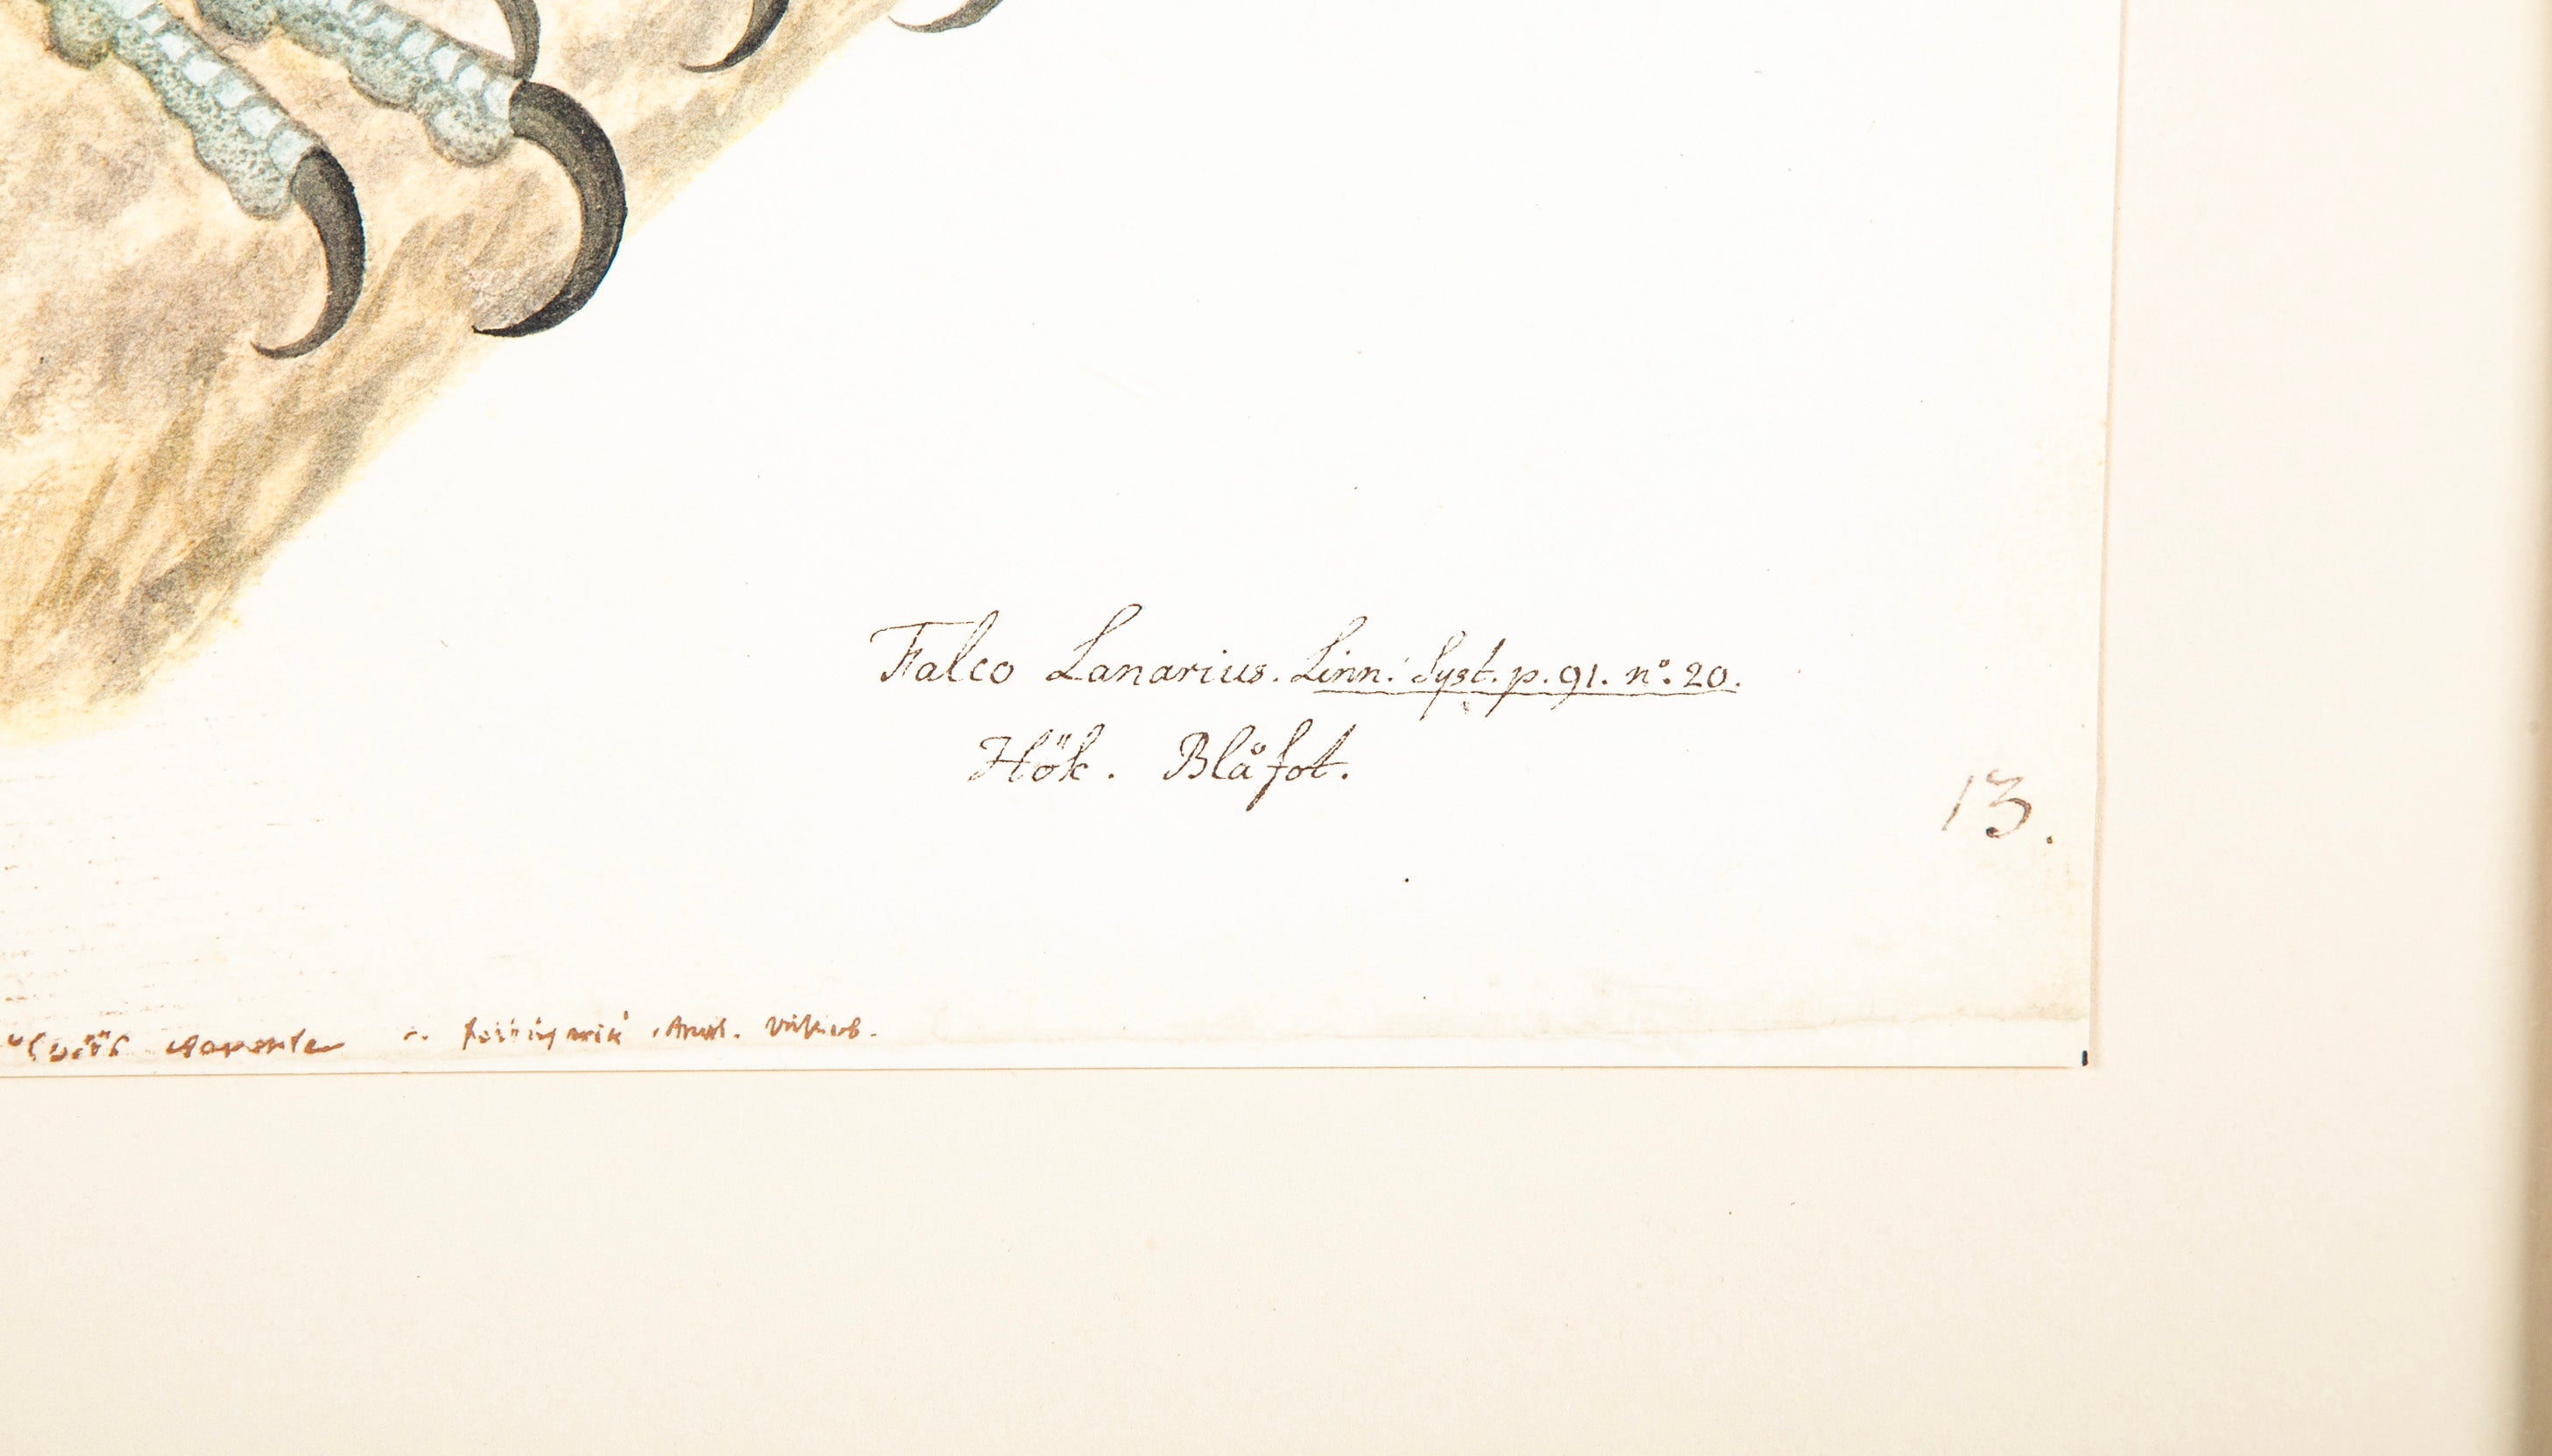 Falco Lanarius. Linn: Syst. p. 91. nº. 20.
Hök. Blåfot.
13.